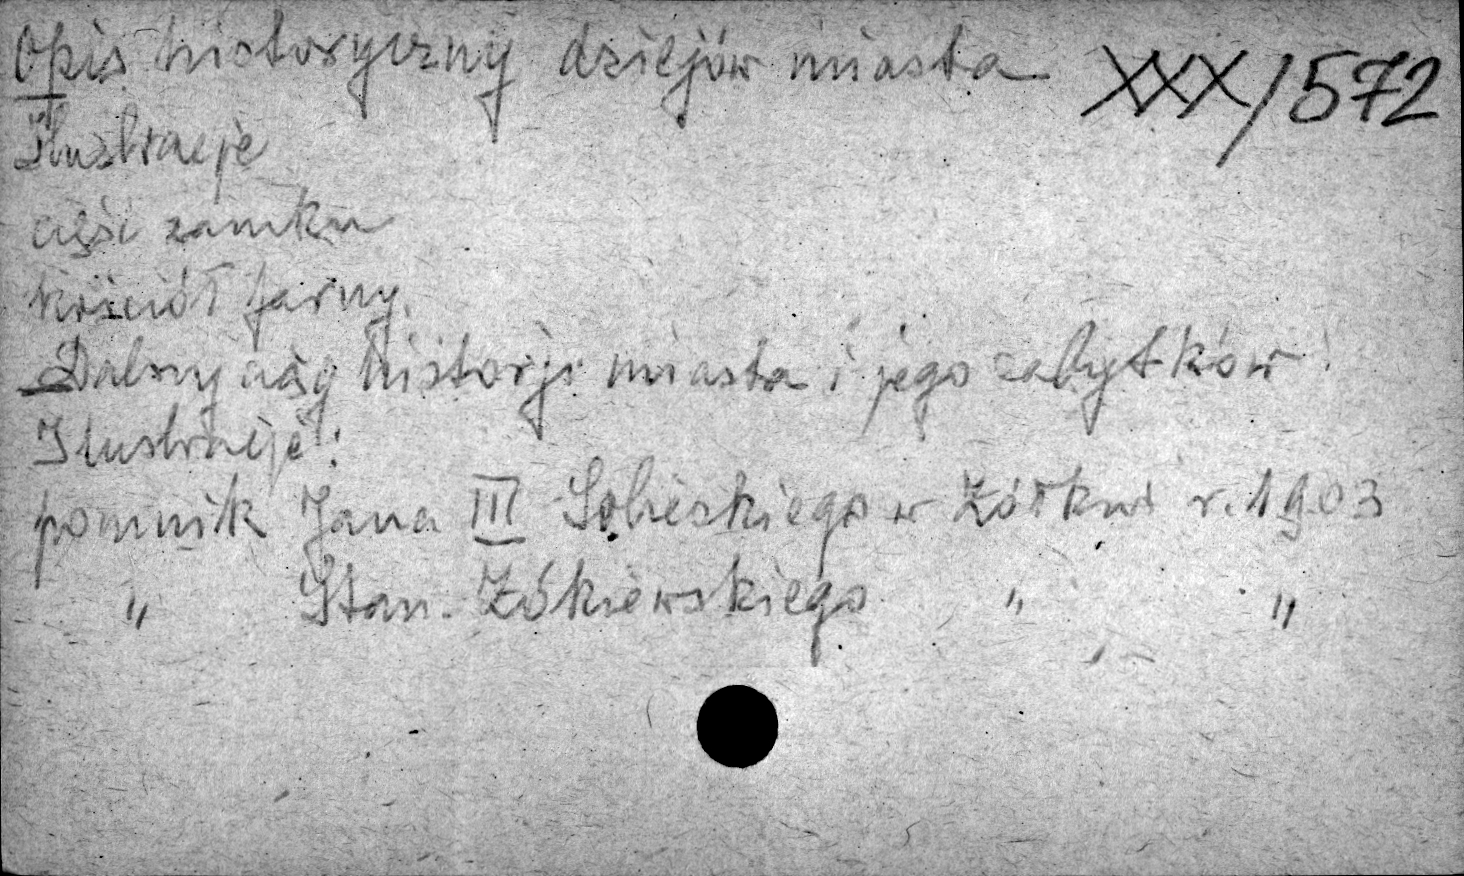 Opis historyczny dziejów miasta XXX/572
Ilustracje
część zamku
kościół farny.
Dalszy ciąg historji miasta i jego zabytków.
Ilustracje:
pomnik Jana III Sobieskiego w Żółkwi r. 1903
" Stan. Żółkiewskiego " "